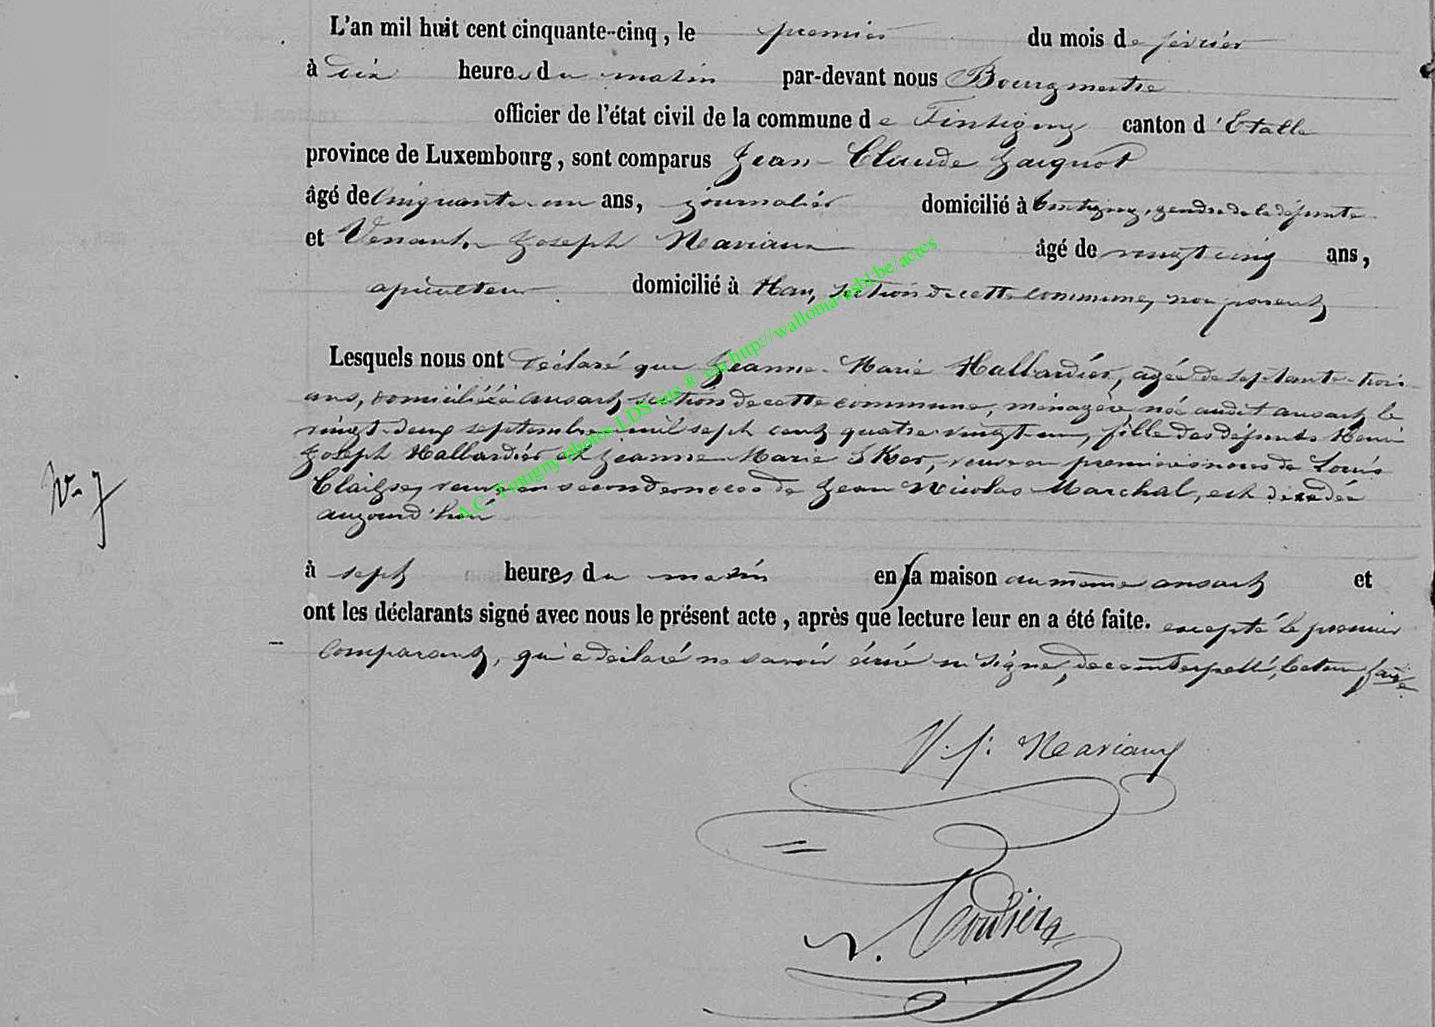 L'an mil huit cent cinquante-cinq, le premier du mois de février
à dix heures du matin par-devant nous Bourgmestre
officier de l'état civil de la commune de Tintigny canton d'Etalle
province de Luxembourg, sont comparus Jean-Claude Jacquot
âgé de cinquante-un ans, journalier domicilié à Tintigny, gendre de la défunte
et Venant Joseph Naviaux âgé de vingt cinq ans,
apiculteur domicilié à Han, section de cette commune, non parent
Lesquels nous ont déclaré que Jeanne-Marie Hallardier, agée de septante-trois
ans, domiciliée à ansart, section de cette commune, ménagère née audit ansart le
vingt-deux septembre mil sept cent quatre vingt-un, fille des défunts Henri
Joseph Hallardier et Jeanne Marie veuve en premières noces de Louis
veuve en secondes noces de Jean Nicolas Marchal, est décédée
aujourd'hui
N. 7
à sept heures du matin en la maison au même ansart et
ont les déclarants signé avec nous le présent acte, après que lecture leur en a été faite. excepté le premier
comparant, qui a déclaré ne savoir écrire ni signer, de ce interpellé, lecture faite
V. J. Naviaux
A.C. Tintigny photos LDS sur ® via http://wallonia-asbl.be/actes